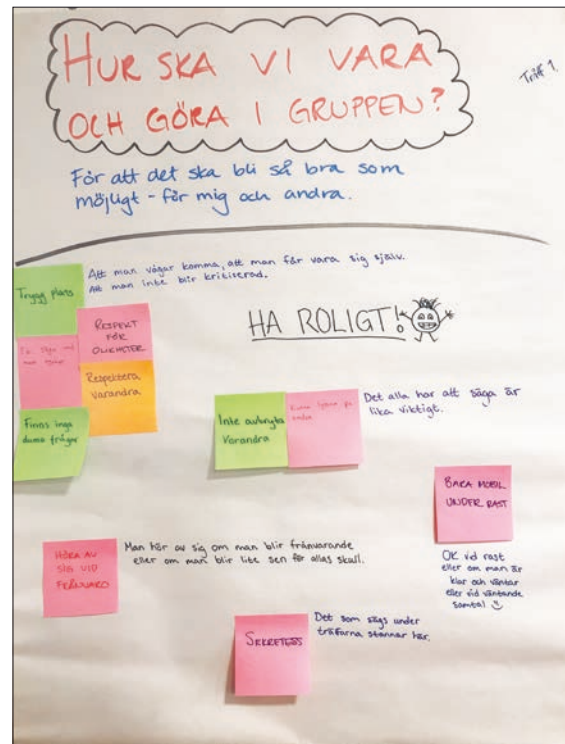 HUR SKA VI VARA
OCH GÖRA I GRUPPEN?
Träff 1.
För att det ska bli så bra som
möjligt - för mig och andra.
Trygg plats
Att man vågar komma, att man får vara sig själv.
Att man inte blir kritiserad.
RESPEKT
FÖR
OLIKHETER
HA ROLIGT!
man
Respektera
varandra
Finns inga
dumma frågor
Inte avbryta
Varandra
Kunna lyssna på
Det alla har att säga är
lika viktigt.
BARA MOBIL
UNDER RAST
OK vid rast
eller om man är
klar och väntar
eller vid väntande
samtal
HÖRA AV
SIG VID
FRÅNVARO
Man hör av sig om man blir frånvarande
eller om man blir lite sen för allas skull.
SEKRETESS
Det som sägs under
träffarna stannar här.